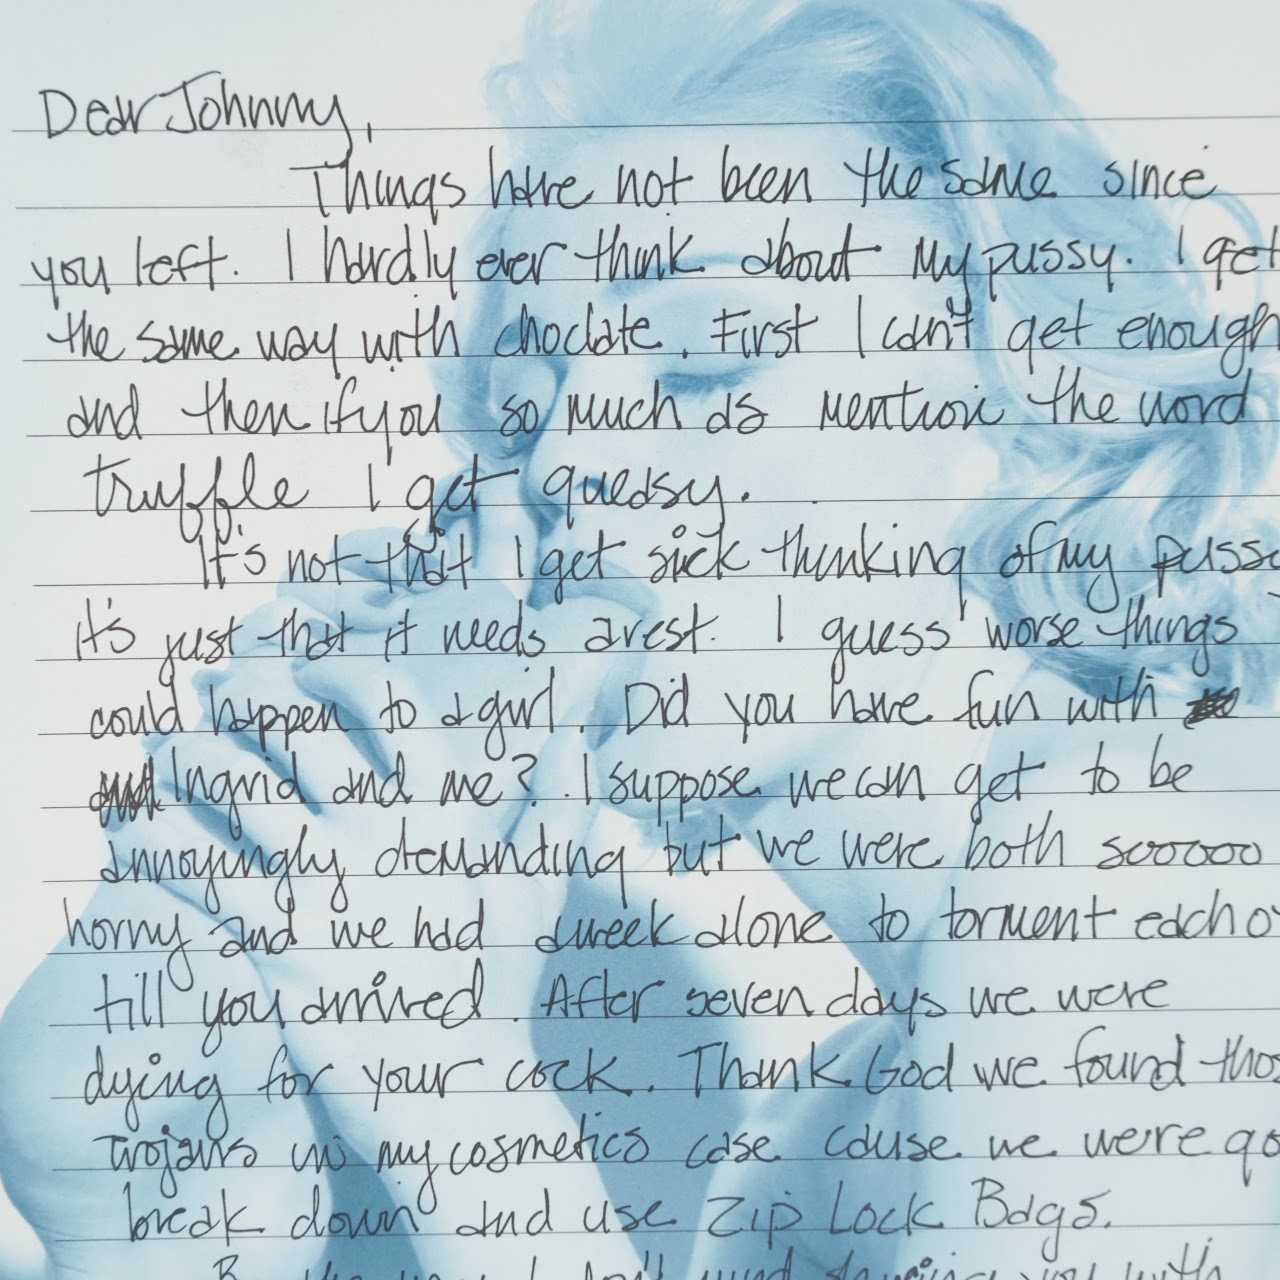 Dear Johnny,
Things have not been the same since
you left. I hardly ever think about my pussy. I get
the same way with choclate. First I can't get enough
and then if you so much as mention the word
truffle I get queasy.
It's not that I get sick thinking of my puss
it's just that it needs a rest. I guess worse things
could happen to a girl. Did you have fun with
Ingrid and me? I suppose we can get to be
annoyingly demanding but we were both sooooo
horny and we had a week alone to torment each o
till you arrived. After seven days we were
dying for your cock. Thank God we found thos
Trojans in my cosmetics case cause we were go
break down and use Zip Lock Bags.
I don't mind sharing you with